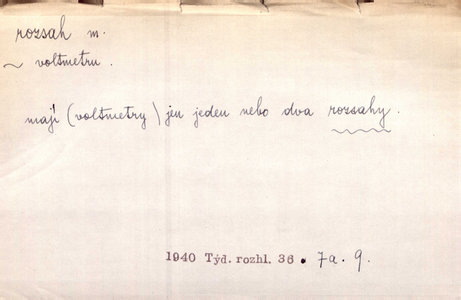 rozsah m.
~ voltmetru.
mají (voltmetry) jen jeden nebo dva rozsahy.
1940 Týd. rozhl. 36. 7a. 9.